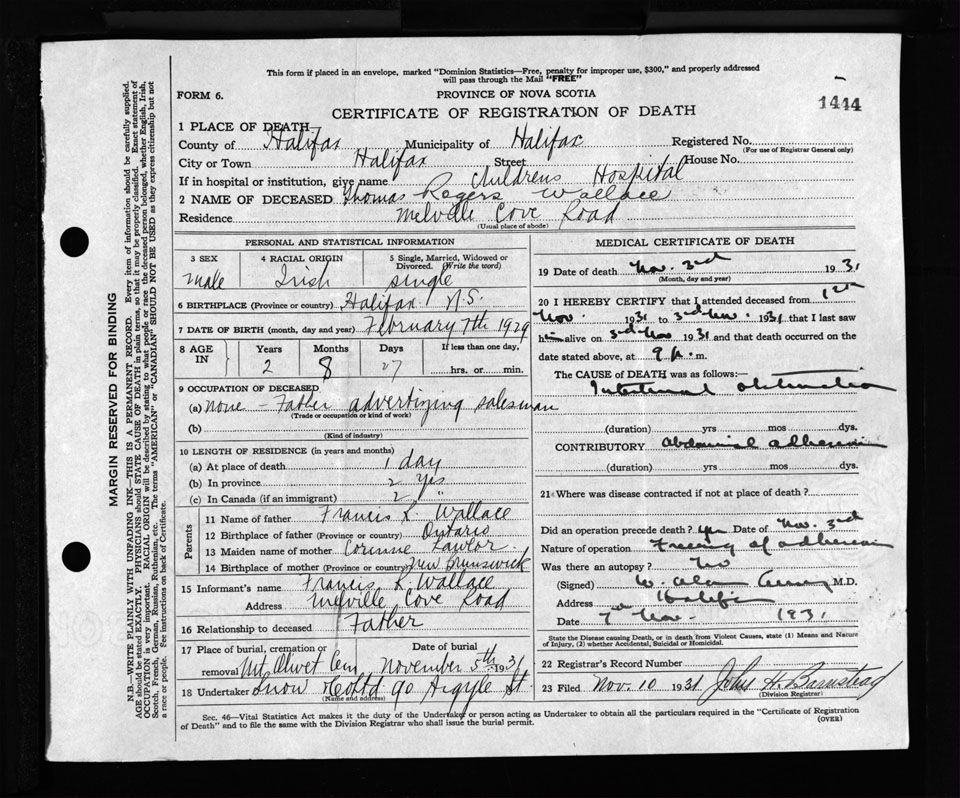 This form if placed in an envelope, marked "Dominion Statistics—Free, penalty for improper use, $300," and properly addressed
will pass through the Mail "FREE"
FORM 6.
PROVINCE OF NOVA SCOTIA
1444
CERTIFICATE OF REGISTRATION OF DEATH
1 PLACE OF DEATH
County of Halifax Municipality of Halifax Registered No.
(For use of Registrar General only)
City or Town Halifax Street House No.
If in hospital or institution, give name Childrens Hospital
2 NAME OF DECEASED Thomas Rogers Wallace
Residence Melville Cove Road
(Usual place of abode)
PERSONAL AND STATISTICAL INFORMATION
3 SEX 4 RACIAL ORIGIN 5 Single, Married, Widowed or
Divorced. (Write the word)
Male Irish single
6 BIRTHPLACE (Province or country) Halifax N.S.
7 DATE OF BIRTH (month, day and year) February 7th 1929
8 AGE IN Years Months Days If less than one day,
2 8 27 hrs. or min.
9 OCCUPATION OF DECEASED
(a) None - Father advertizing salesman
(Trade or occupation or kind of work)
(b)
(Kind of industry)
10 LENGTH OF RESIDENCE (in years and months)
(a) At place of death 1 day
(b) In province 2 yrs
(c) In Canada (if an immigrant) 2 "
Parents
11 Name of father Francis K. Wallace
12 Birthplace of father (Province or country) Ontario
13 Maiden name of mother Corinne Lawlor
14 Birthplace of mother (Province or country) New Brunswick
15 Informant's name Francis K. Wallace
Address Melville Cove Road
16 Relationship to deceased Father
17 Place of burial, cremation or Date of burial
removal Mt Olivet Cem November 5th 1931
18 Undertaker Snow & Co Ltd 90 Argyle St
(Name and address)
MEDICAL CERTIFICATE OF DEATH
19 Date of death Nov. 3rd 1931
(Month, day and year)
20 I HEREBY CERTIFY that I attended deceased from
Nov. 1931 to 3rd Nov. 1931 that I last saw
him alive on 3rd Nov 1931 and that death occurred on the
date stated above, at 9 p. m.
The CAUSE OF DEATH was as follows:—
Intestinal obstruction
(duration) yrs mos dys.
CONTRIBUTORY Abdominal adhesions
(duration) yrs mos dys.
21 Where was disease contracted if not at place of death?
Did an operation precede death? Yes Date of Nov. 3rd
Nature of operation Freeing of adhesions
Was there an autopsy? No
(Signed) W. Alan M.D.
Address Halifax
Date 7th Nov. 1931
State the Disease causing Death, or in death from Violent Causes, state (1) Means and Nature
of Injury, (2) whether Accidental, Suicidal or Homicidal.
22 Registrar's Record Number
23 Filed Nov. 10 1931 John H. Barnstead
(Division Registrar)
Sec. 46—Vital Statistics Act makes it the duty of the Undertaker or person acting as Undertaker to obtain all the particulars required in the "Certificate of Registration
of Death" and to file the same with the Division Registrar who shall issue the burial permit.
(OVER)
MARGIN RESERVED FOR BINDING
N.B.—WRITE PLAINLY WITH UNFADING INK—THIS IS A PERMANENT RECORD. Every item of information should be carefully supplied.
AGE should be stated EXACTLY. PHYSICIANS should STATE CAUSE OF DEATH in plain terms, so that it may be properly classified. Exact statement of
OCCUPATION is very important. RACIAL ORIGIN will be described by stating to what people or race the deceased person belonged, whether English, Irish,
Scotch, French, German, Russian, Ruthenian, etc. The terms "AMERICAN" or "CANADIAN" SHOULD NOT BE USED as they express citizenship but not
a race or people. See instructions on back of Certificate.